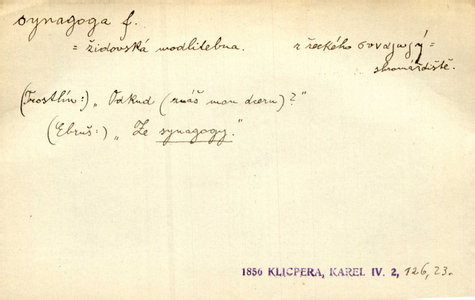 synagoga f.
= židovská modlitebna. z řeckého συναγωγή =
shromáždiště.
(Trostlín:) „Odkud (znáš mou dceru)?"
(Ebruš:) „Ze synagogy."
1856 KLICPERA, KAREL IV. 2, 126, 23.